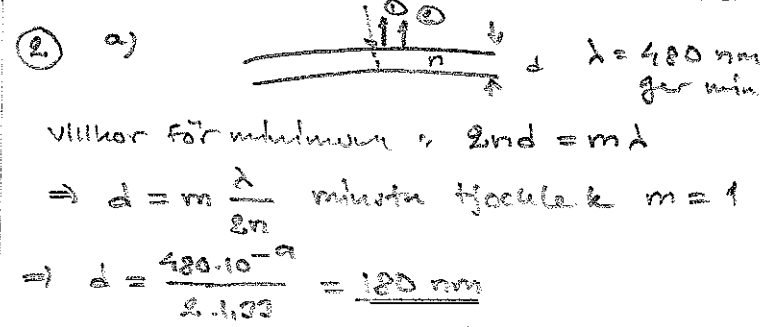 ② a) ① ② n d λ = 480 nm
ger min
villkor för minimum : 2nd = mλ
⇒ d = m λ/2n minsta tjocklek m = 1
⇒ d = 480·10⁻⁹/2·1,33 = 180 nm